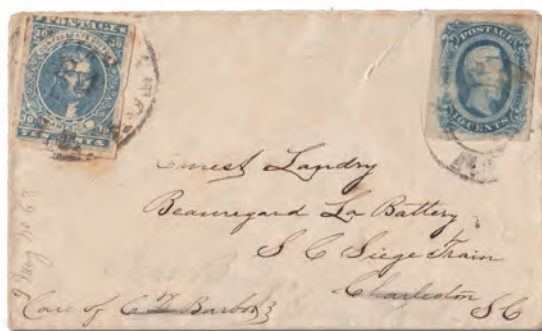 POSTAGE
10 CONFEDERATE 10
10 10
TEN CENTS
POSTAGE
10 CENTS
Ernest Landry
Beauregard La Battery
S C Siege Train
Charleston
S C
Care of Barbot